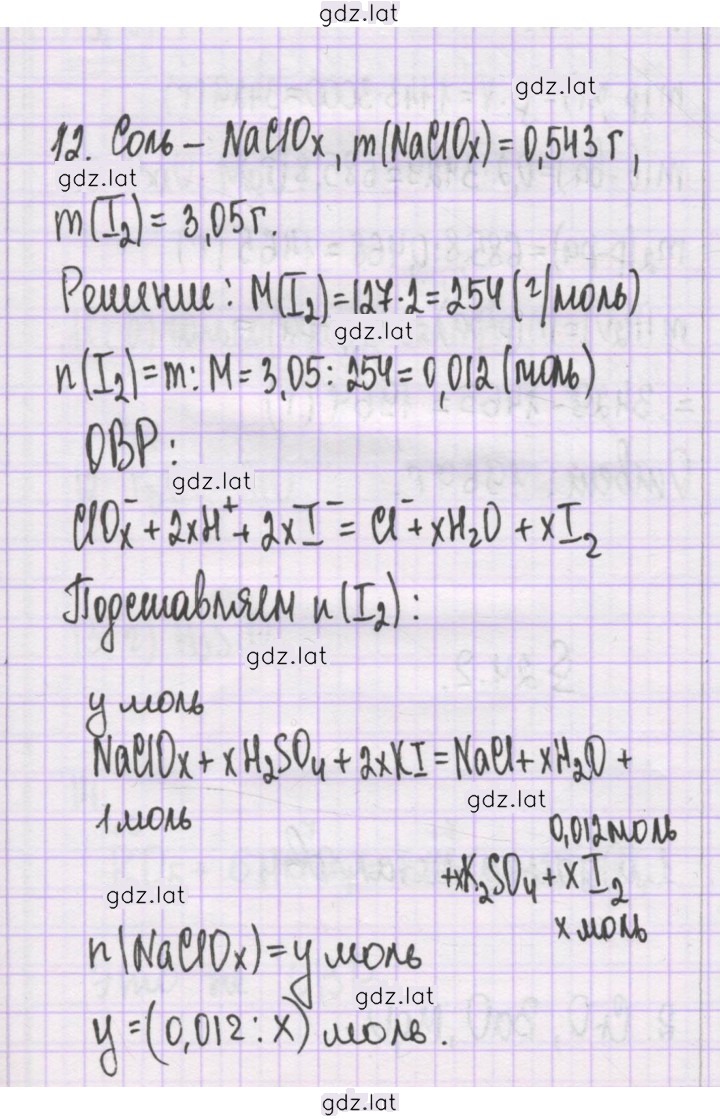 gdz.lat
gdz.lat
12. Соль – NaClOx, m(NaClOx) = 0,543 г,
gdz.lat
m(I₂) = 3,05 г.
Решение: M(I₂) = 127·2 = 254 (г/моль)
gdz.lat
n(I₂) = m : M = 3,05 : 254 = 0,012 (моль)
ОВР:
gdz.lat
ClOx⁻ + 2xH⁺ + 2xI⁻ = Cl⁻ + xH₂O + xI₂
Подставляем n(I₂):
gdz.lat
y моль
NaClOx + xH₂SO₄ + 2xKI = NaCl + xH₂O +
gdz.lat
1 моль
0,012 моль
+xK₂SO₄ + xI₂
gdz.lat
x моль
n(NaClOx) = y моль
gdz.lat
y = (0,012 : x) моль.
gdz.lat